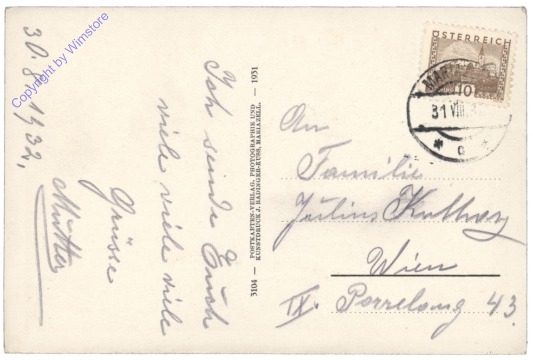 Copyright by Wimstore
30.8.1932.
Ich sende Euch
viele viele viele
Grüsse
Mutter
3104 — POSTKARTEN-VERLAG, PHOTOGRAPHIE UND — 1931
KUNSTDRUCK J. RADINGER-KUSS, MARIAZELL.
ÖSTERREICH
10
MARIA
31 VIII
An
Familie
Julius
Wien
IX. 43.